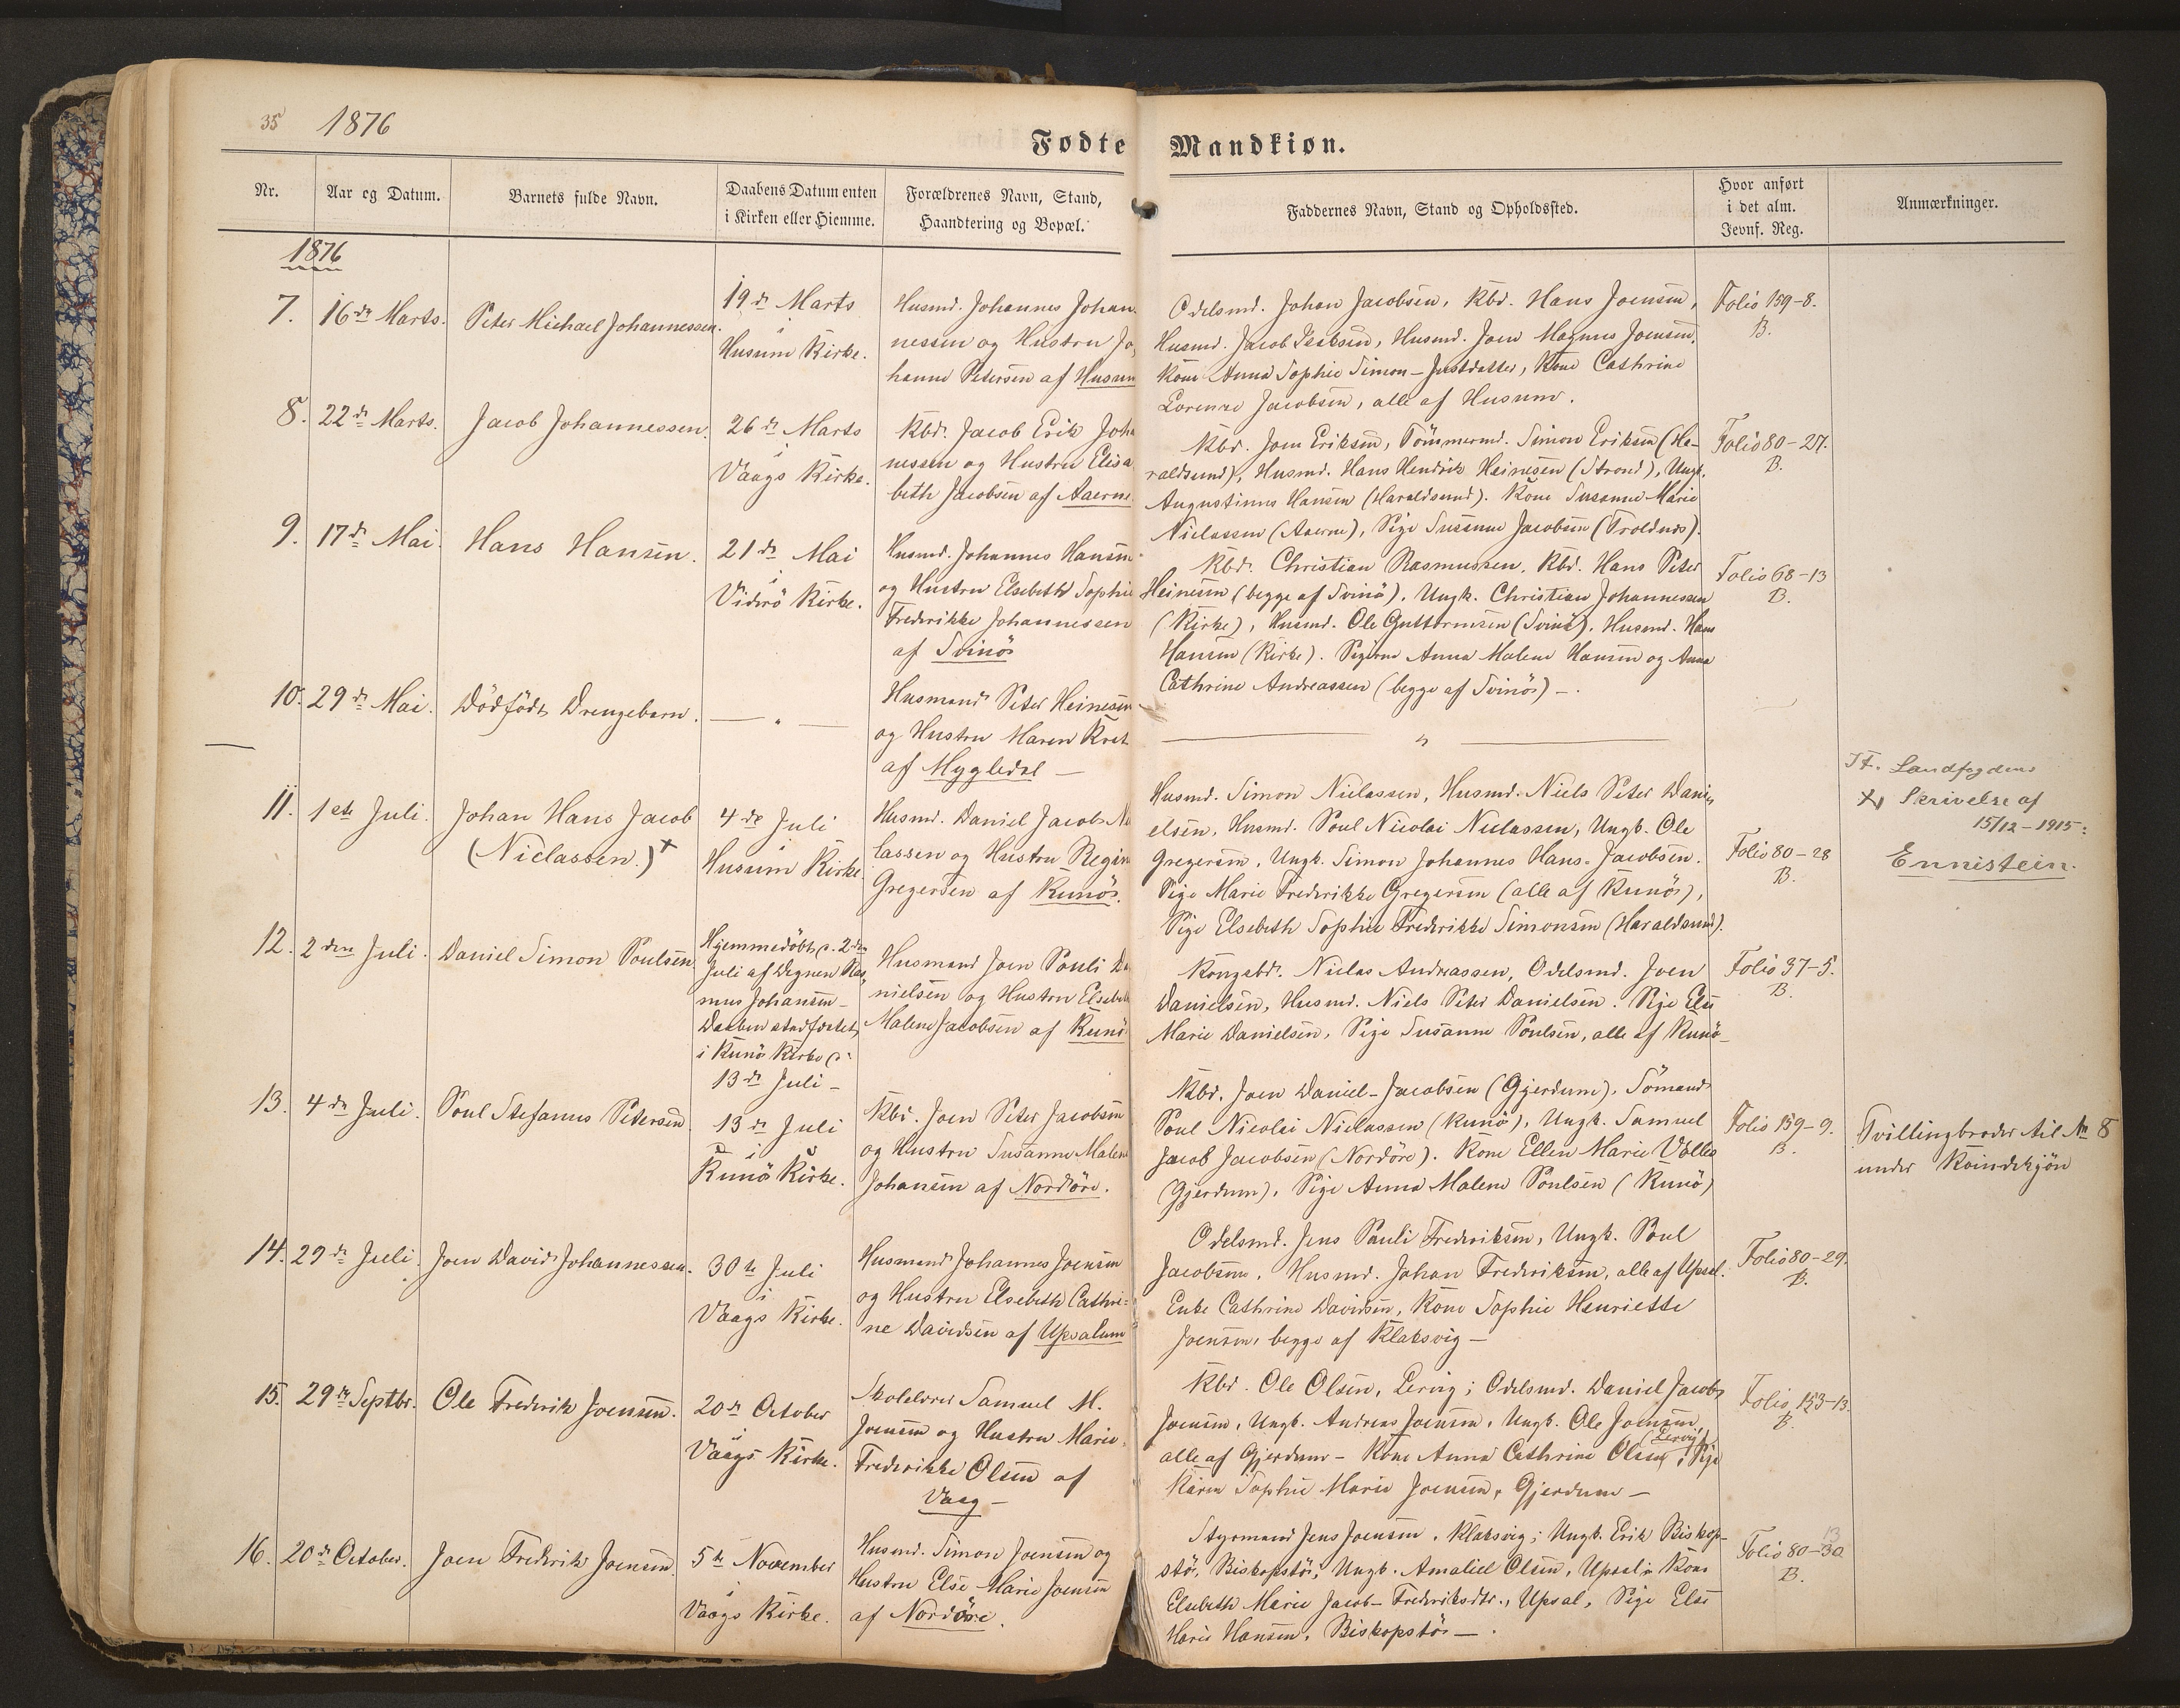 35 1876
Fødte Mandkiøn.
Nr.
Aar og Datum.
Barnets fulde Navn.
Daabens Datum enten
i Kirken eller Hiemme.
Forældrenes Navn, Stand,
Haandtering og Bopæl.
Faddernes Navn, Stand og Opholdssted.
Hvor anført
i det alm.
Jevnf. Reg.
Anmærkninger.
1876
7.
16de Marts.
Peter Michael Johannessen.
19de Marts
i
Husum Kirke.
Husmd. Johannes Johan-
nessen og Hustru Jo-
hanne Petersen af Husum
Odelsmd. Johan Jacobsen, Kbd. Hans Joensen,
Husmd. Jacob Isaksen, Husmd. Joen Magnus Joensen,
Kone Anna Sophie Simon-Justdatter, Kone Cathrine
Lorenze Jacobsen, alle af Husum.
Folio 159-8.
B.
8.
22de Marts.
Jacob Johannessen.
26de Marts
i
Vaags Kirke.
Kbd. Jacob Erik Joha
nessen og Hustru Elisa
beth Jacobsen af Aaerne
Kbd. Joen Eriksen, Tömmermd. Simon Eriksen (Ha-
raldsund), Husmd. Hans Hendrik Heinesen (Strond), Ungk.
Augustinus Hansen (Haraldsund). Kone Susanne Marie
Niclassen (Aaerne), Pige Susanne Jacobsen (Troldnæs).
Folio 80-27.
B.
9.
17de Mai.
Hans Hansen.
21de Mai
i
Viderö Kirke.
Husmd. Johannes Hansen
og Hustru Elsebeth Sophie
Frederikke Johannessen
af Svinö
Kbd. Christian Rasmussen, Kbd. Hans Peter
Heinesen (begge af Svinö). Ungk. Christian Johannessen
(Kirke), Husmd. Ole Guttormsen (Svinö). Husmd. Hans
Hansen (Kirke). Pigerne Anna Malene Hansen og Anna
Cathrine Andreassen (begge af Svinö) -.
Folio 68-13
B.
10.
29de Mai.
Dödfödt Drengebarn.
— " —
Husmand Peter Heinesen
og Hustru Maren Kret
af Mygledal —
— " —
11.
1ste Juli.
Johan Hans Jacob
(Niclassen.)+
4de Juli
i
Husum Kirke.
Husmd. Daniel Jacob Ni
lassen og Hustru Regin
Gregersen af Kunö.
Husmd. Simon Niclassen, Husmd. Niels Peter Dani-
elsen, Husmd. Poul Nicolai Niclassen, Ungk. Ole
Gregersen, Ungk. Simon Johannes Hans-Jacobsen.
Pige Marie Frederikke Gregersen (alle af Kunö),
Pige Elsebeth Sophie Frederikke Simonsen (Haraldsund).
Folio 80-28
B.
If. Landfogdens
+) Skrivelse af
15/12-1915:
Ennistein.
12.
2den Juli.
Daniel Simon Poulsen
Hjemmedöbt d. 2den
Juli af Degnen Ras-
mus Johansen -
Daaben stadfæstet
i Kunö Kirke d.
13de Juli -
Husmand Joen Pouli Da
nielsen og Hustru Elsebeth
Malene Jacobsen af Kunö
Kongsbd. Niclas Andreassen, Odelsmd. Joen
Danielsen, Husmd. Niels Peter Danielsen. Pige Else
Marie Danielsen, Pige Susanne Poulsen, alle af Kunö-
Folio 37-5.
B.
13.
4de Juli.
Poul Stefanus Petersen.
13de Juli
i
Kunö Kirke.
Kbd. Joen Peter Jacobsen
og Hustru Susanne Malene
Johansen af Nordöre.
Kbd. Joen Daniel-Jacobsen (Gjerdum), Sömand
Poul Nicolai Niclassen (Kunö), Ungk. Samuel
Jacob Jacobsen (Nordöre). Kone Ellen Marie Völles
(Gjerdum), Pige Anna Malene Poulsen (Kunö)
Folio 159-9.
B.
Tvillingbroder til No 8
under Kvindekjön
14.
29de Juli.
Joen David Johannessen.
30te Juli
i
Vaags Kirke.
Husmand Johannes Joensen
og Hustru Elsebeth Cathri-
ne Davidsen af Upsalum
Odelsmd. Jens Pauli Frederiksen, Ungk. Poul
Jacobsen, Husmd. Johan Frederiksen, alle af Upsal.
Enke Cathrine Davidsen, Kone Sophie Henriette
Joensen, begge af Klaksvig -
Folio 80-29.
B.
15.
29de Septbr.
Ole Frederik Joensen.
20de October
i
Vaags Kirke.
Skolelærer Samuel M.
Joensen og Hustru Marie
Frederikke Olsen af
Vaag -
Kbd. Ole Olsen, Lervig; Odelsmd. Daniel Jacob
Joensen, Ungk. Andreas Joensen, Ungk. Ole Joensen,
alle af Gjerdum - Kone Anna Cathrine Olsen (Lervig), Pige
Karen Sophie Marie Joensen, Gjerdum -
Folio 153-13.
B.
16.
20de October.
Joen Frederik Joensen.
5te November
i
Vaags Kirke.
Husmd. Simon Joensen og
Hustru Else Marie Joensen
af Nordöre.
Styrmand Jens Joensen, Klaksvig; Ungk. Erik Biskop-
stö, Biskopstö; Ungk. Amaliel Olsen, Upsal; Kone
Elsebeth Marie Jacob-Frederiksdtr., Upsal, Pige Else
Marie Hansen, Biskopstö -.
13
Folio 80-30
B.